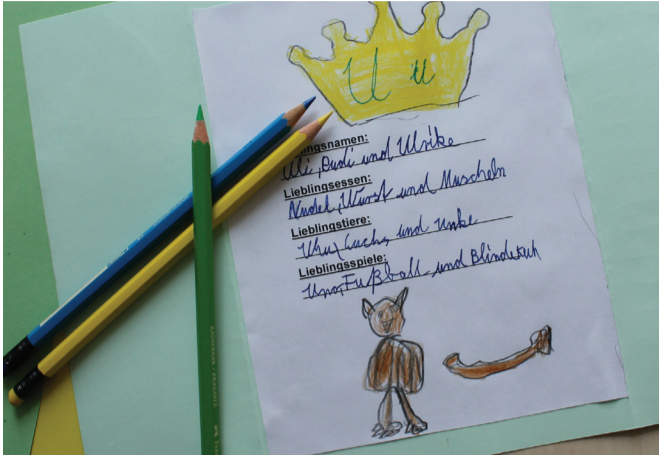 U u
lingsnamen:
Uli, Rudi und Ulrike
Lieblingsessen:
Nudel, Wurst und Muscheln
Lieblingstiere:
Uhu, Luchs und Unke
Lieblingsspiele:
Uno, Fußball und Blindekuh